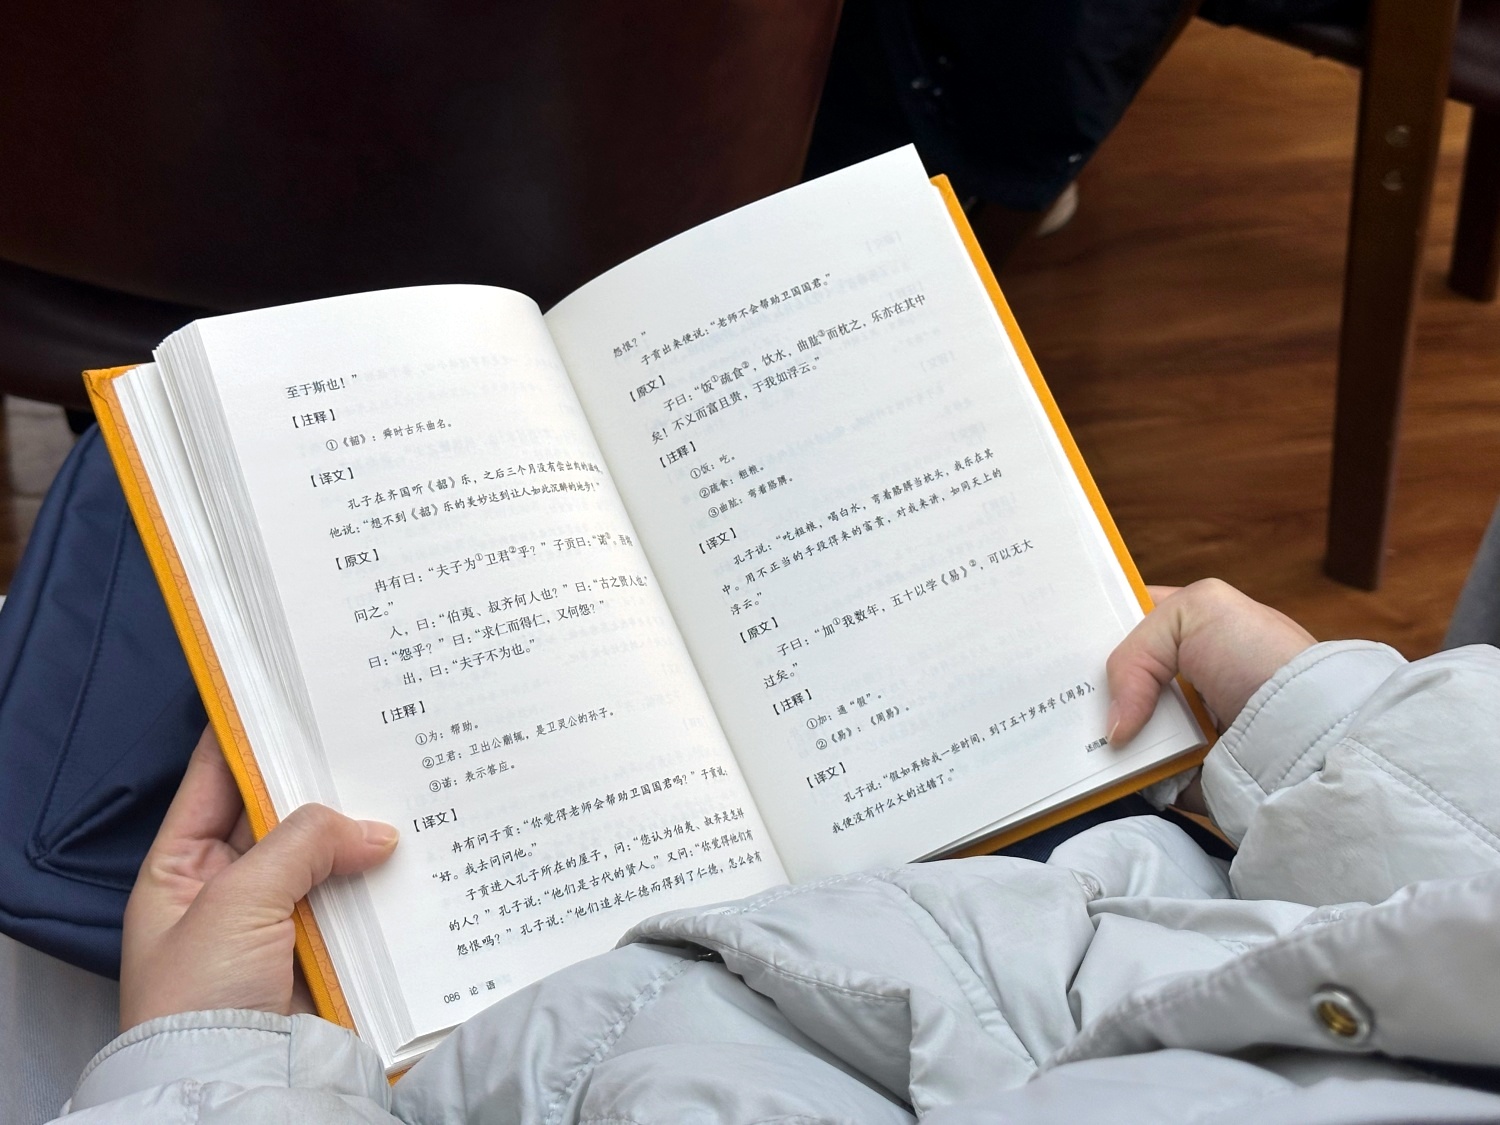 至于斯也！”
【注释】
①《韶》：舜时古乐曲名。
【译文】
孔子在齐国听《韶》乐，之后三个月没有尝出肉的滋味，
他说：“想不到《韶》乐的美妙达到让人如此沉醉的地步！”
【原文】
冉有曰：“夫子为①卫君②乎？”子贡曰：“诺③。吾将
问之。”
入，曰：“伯夷、叔齐何人也？”曰：“古之贤人也。”
曰：“怨乎？”曰：“求仁而得仁，又何怨？”
出，曰：“夫子不为也。”
【注释】
①为：帮助。
②卫君：卫出公蒯辄，是卫灵公的孙子。
③诺：表示答应。
【译文】
冉有问子贡：“你觉得老师会帮助卫国国君吗？”子贡说：
“好。我去问问他。”
子贡进入孔子所在的屋子，问：“您认为伯夷、叔齐是怎样
的人？”孔子说：“他们是古代的贤人。”又问：“你觉得他们有
怨恨吗？”孔子说：“他们追求仁德而得到了仁德，怎么会有
086 论语
怨恨？”
子贡出来便说：“老师不会帮助卫国国君。”
【原文】
子曰：“饭①疏食②，饮水，曲肱③而枕之，乐亦在其中
矣！不义而富且贵，于我如浮云。”
【注释】
①饭：吃。
②疏食：粗粮。
③曲肱：弯着胳膊。
【译文】
孔子说：“吃粗粮，喝白水，弯着胳膊当枕头，我乐在其
中。用不正当的手段得来的富贵，对我来讲，如同天上的
浮云。”
【原文】
子曰：“加①我数年，五十以学《易》②，可以无大
过矣。”
【注释】
①加：通“假”。
②《易》：《周易》。
【译文】
孔子说：“假如再给我一些时间，到了五十岁再学《周易》，
我便没有什么大的过错了。”
述而篇